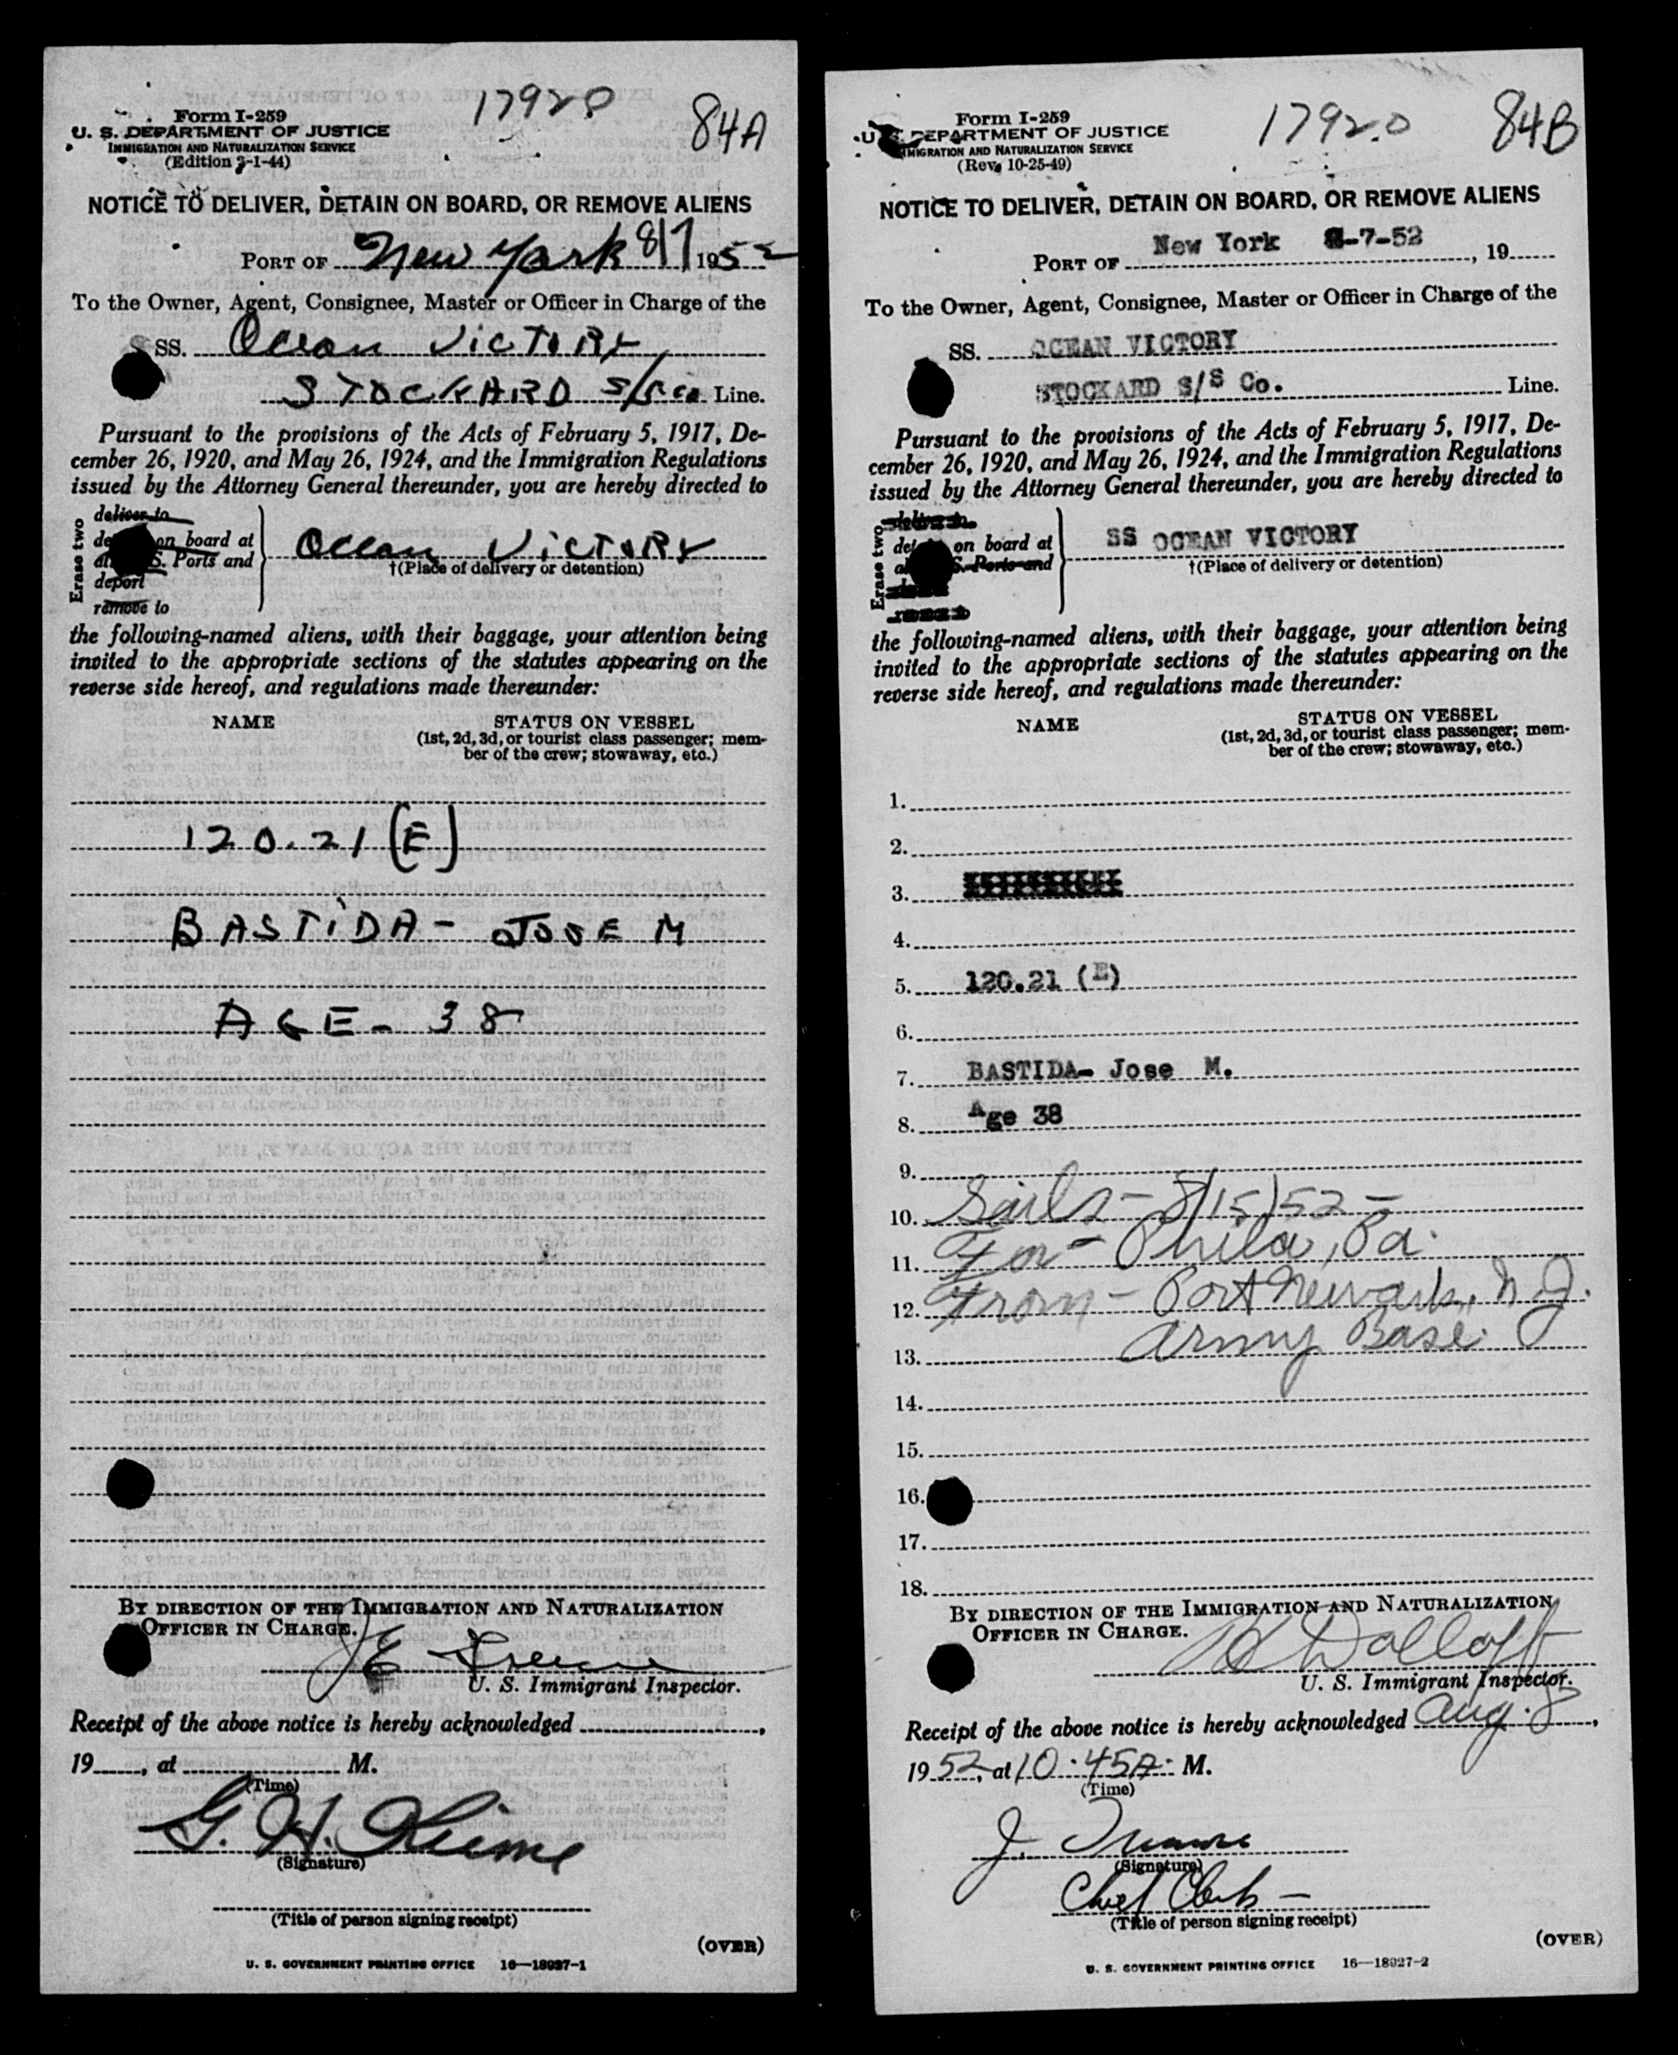 17920
84A
Form I-259
U. S. DEPARTMENT OF JUSTICE
IMMIGRATION AND NATURALIZATION SERVICE
(Edition 3-1-44)
NOTICE TO DELIVER, DETAIN ON BOARD, OR REMOVE ALIENS
PORT OF New York 8/7 1952
To the Owner, Agent, Consignee, Master or Officer in Charge of the
SS. Ocean VICTORY
STOCKARD S/S Co. Line.
Pursuant to the provisions of the Acts of February 5, 1917, De-
cember 26, 1920, and May 26, 1924, and the Immigration Regulations
issued by the Attorney General thereunder, you are hereby directed to
Erase two
deliver to
on board at
S. Ports and
deport
remove to
Ocean VICTORY
†(Place of delivery or detention)
the following-named aliens, with their baggage, your attention being
invited to the appropriate sections of the statutes appearing on the
reverse side hereof, and regulations made thereunder:
NAME
STATUS ON VESSEL
(1st, 2d, 3d, or tourist class passenger; mem-
ber of the crew; stowaway, etc.)
120.21 (E)
BASTIDA - JOSE M
AGE - 38
BY DIRECTION OF THE IMMIGRATION AND NATURALIZATION
OFFICER IN CHARGE.
U. S. Immigrant Inspector.
Receipt of the above notice is hereby acknowledged ,
19 , at M.
(Time)
G. H.
(Signature)
(Title of person signing receipt)
(OVER)
U. S. GOVERNMENT PRINTING OFFICE 16—18027-1
17920
84B
Form I-259
U. S. DEPARTMENT OF JUSTICE
IMMIGRATION AND NATURALIZATION SERVICE
(Rev. 10-25-49)
NOTICE TO DELIVER, DETAIN ON BOARD, OR REMOVE ALIENS
PORT OF New York 8-7-52, 19
To the Owner, Agent, Consignee, Master or Officer in Charge of the
SS. OCEAN VICTORY
STOCKARD S/S Co. Line.
Pursuant to the provisions of the Acts of February 5, 1917, De-
cember 26, 1920, and May 26, 1924, and the Immigration Regulations
issued by the Attorney General thereunder, you are hereby directed to
Erase two
on board at
S. Ports and
SS OCEAN VICTORY
†(Place of delivery or detention)
the following-named aliens, with their baggage, your attention being
invited to the appropriate sections of the statutes appearing on the
reverse side hereof, and regulations made thereunder:
NAME
STATUS ON VESSEL
(1st, 2d, 3d, or tourist class passenger; mem-
ber of the crew; stowaway, etc.)
1.
2.
3.
4.
5. 120.21 (E)
6.
7. BASTIDA- Jose M.
8. Age 38
9.
10. Sails - 8/15/52 -
11. For - Phila, Pa.
12. From - Port Newark, N.J.
13. Army Base.
14.
15.
16.
17.
18.
BY DIRECTION OF THE IMMIGRATION AND NATURALIZATION
OFFICER IN CHARGE.
U. S. Immigrant Inspector.
Receipt of the above notice is hereby acknowledged Aug. 8,
1952, at 10:45A. M.
(Time)
J.
(Signature)
Chief Clerk -
(Title of person signing receipt)
(OVER)
U. S. GOVERNMENT PRINTING OFFICE 16—18027-2